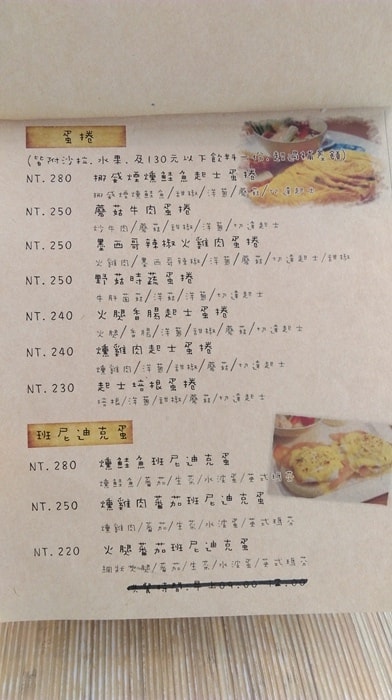 蛋捲
(皆附沙拉,水果,及130元以下飲料一份,超過補差額)
NT. 280 挪威煙燻鮭魚起士蛋捲
挪威煙燻鮭魚/甜椒/洋蔥/蘑菇/切達起士
NT. 250 蘑菇牛肉蛋捲
炒牛肉/蘑菇/甜椒/洋蔥/切達起士
NT. 250 墨西哥辣椒火雞肉蛋捲
火雞肉/墨西哥辣椒/洋蔥/蘑菇/切達起士/甜椒
NT. 250 野菇時蔬蛋捲
牛肝菌菇/洋菇/洋蔥/切達起士
NT. 240 火腿香腸起士蛋捲
火腿/香腸/洋蔥/甜椒/蘑菇/切達起士
NT. 240 燻雞肉起士蛋捲
燻雞肉/洋蔥/甜椒/蘑菇/切達起士
NT. 230 起士培根蛋捲
培根/洋蔥/甜椒/蘑菇/切達起士
班尼迪克蛋
NT. 280 燻鮭魚班尼迪克蛋
燻鮭魚/番茄/生菜/水波蛋/英式瑪芬
NT. 250 燻雞肉蕃茄班尼迪克蛋
燻雞肉/蕃茄/生菜/水波蛋/英式瑪芬
NT. 220 火腿蕃茄班尼迪克蛋
火腿/蕃茄/生菜/水波蛋/英式瑪芬